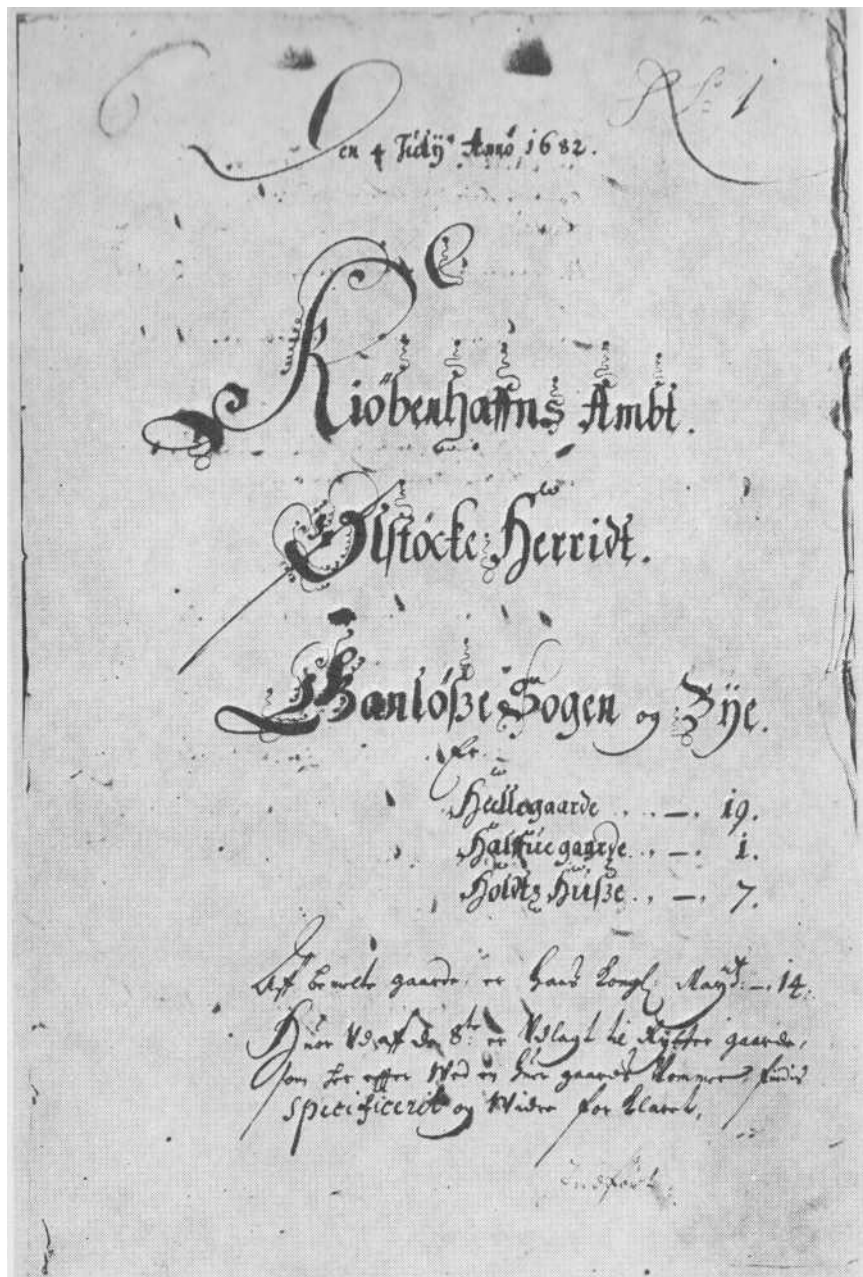 No: 1
Den 4 Julÿ Anno 1682.
Kiöbenhaffns Ambt.
Ølstöcke Herridt.
Ganlösze Sogen og Bÿe.
Er
Heellegaarde . . — . 19.
Halffuegaarde . . — . 1.
Holdtz Husze . . — . 7.
Aff bemelte gaarde, er Hans Kongl. Maÿtt: — . 14.
Huor Vdaff de 8te er Vdlagt til Rÿtter gaarde,
som her effter Wed en huer gaards Nommer, findis
specificerit og Widre for klaret,
Indført.